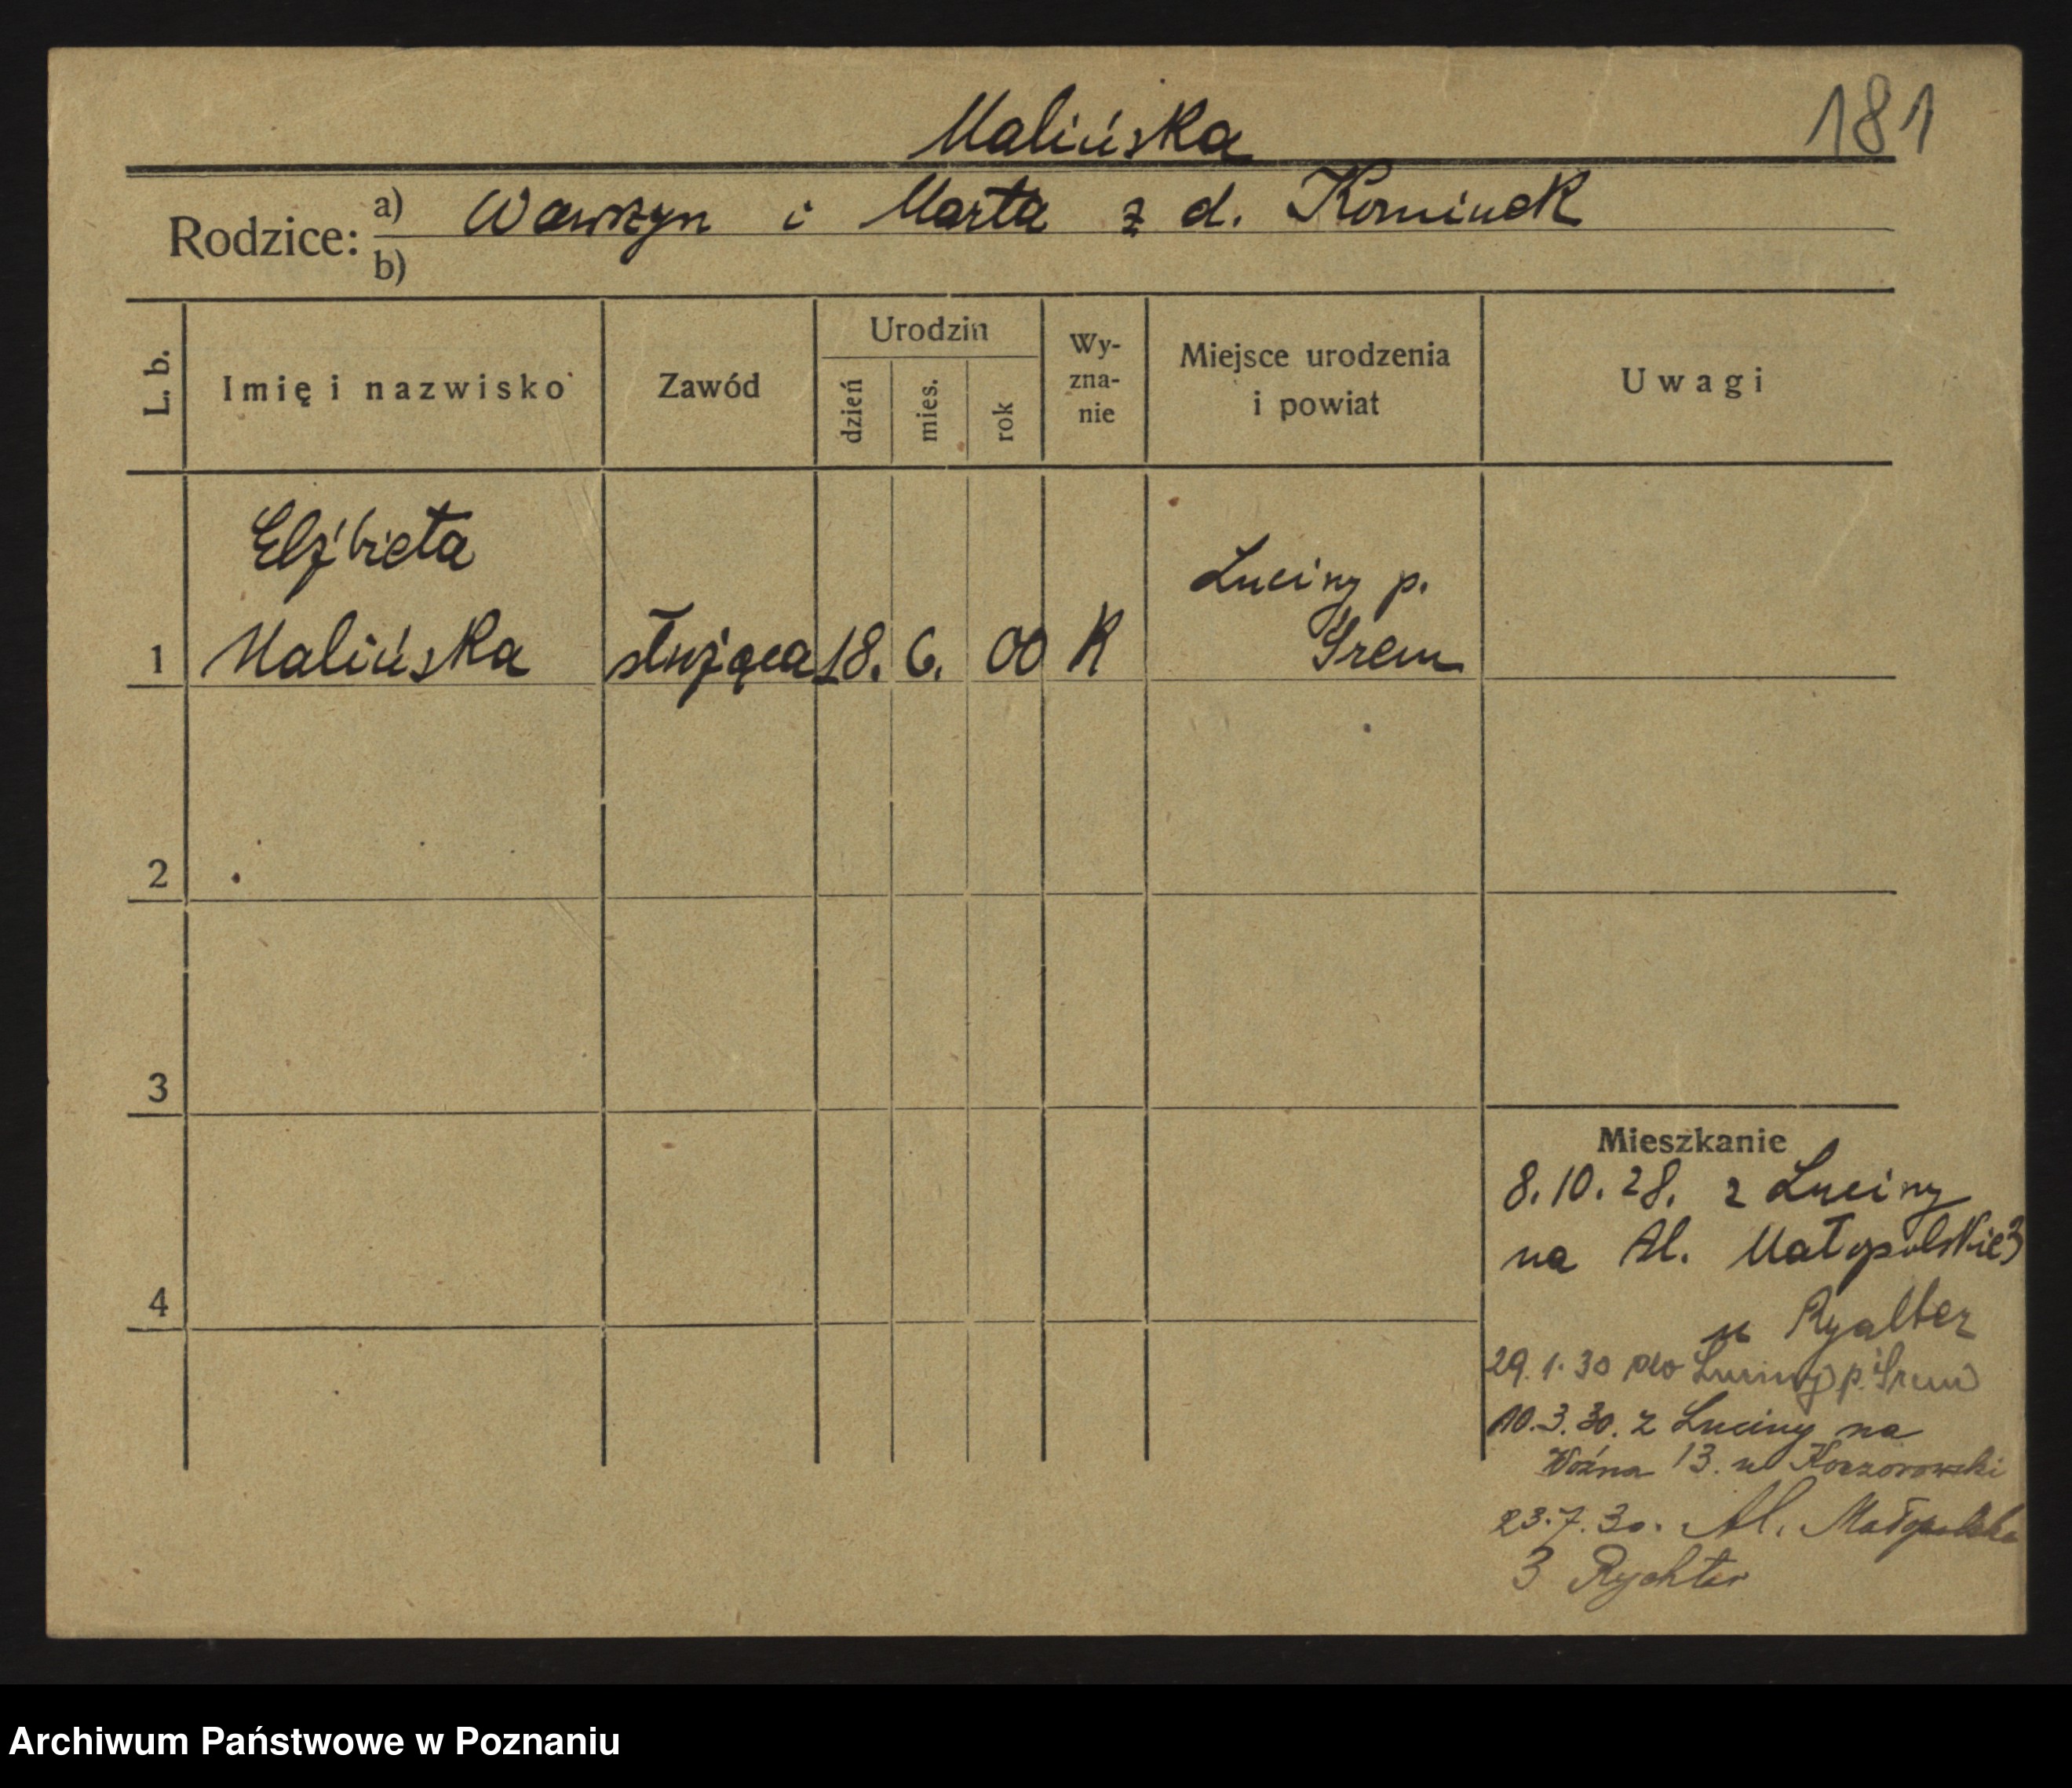 181
Malińska
Rodzice: a) Wawrzyn i Marta z d. Kominek
b)
L. b.
Imię i nazwisko
Zawód
Urodzin
dzień
mies.
rok
Wy-
zna-
nie
Miejsce urodzenia
i powiat
Uwagi
Elżbieta
Luciny p.
1 Malińska służąca 18. 6. 00 K Śrem
2
3
Mieszkanie
8.10.28. z Luciny
na Al. Małopolskie 3
4
u
29.1.30 do Luciny p. Śrem
10.3.30. z Luciny na
Woźna 13. u Koczorowski
23.7.30. Al. Małopolska
3 Rychter
Archiwum Państwowe w Poznaniu